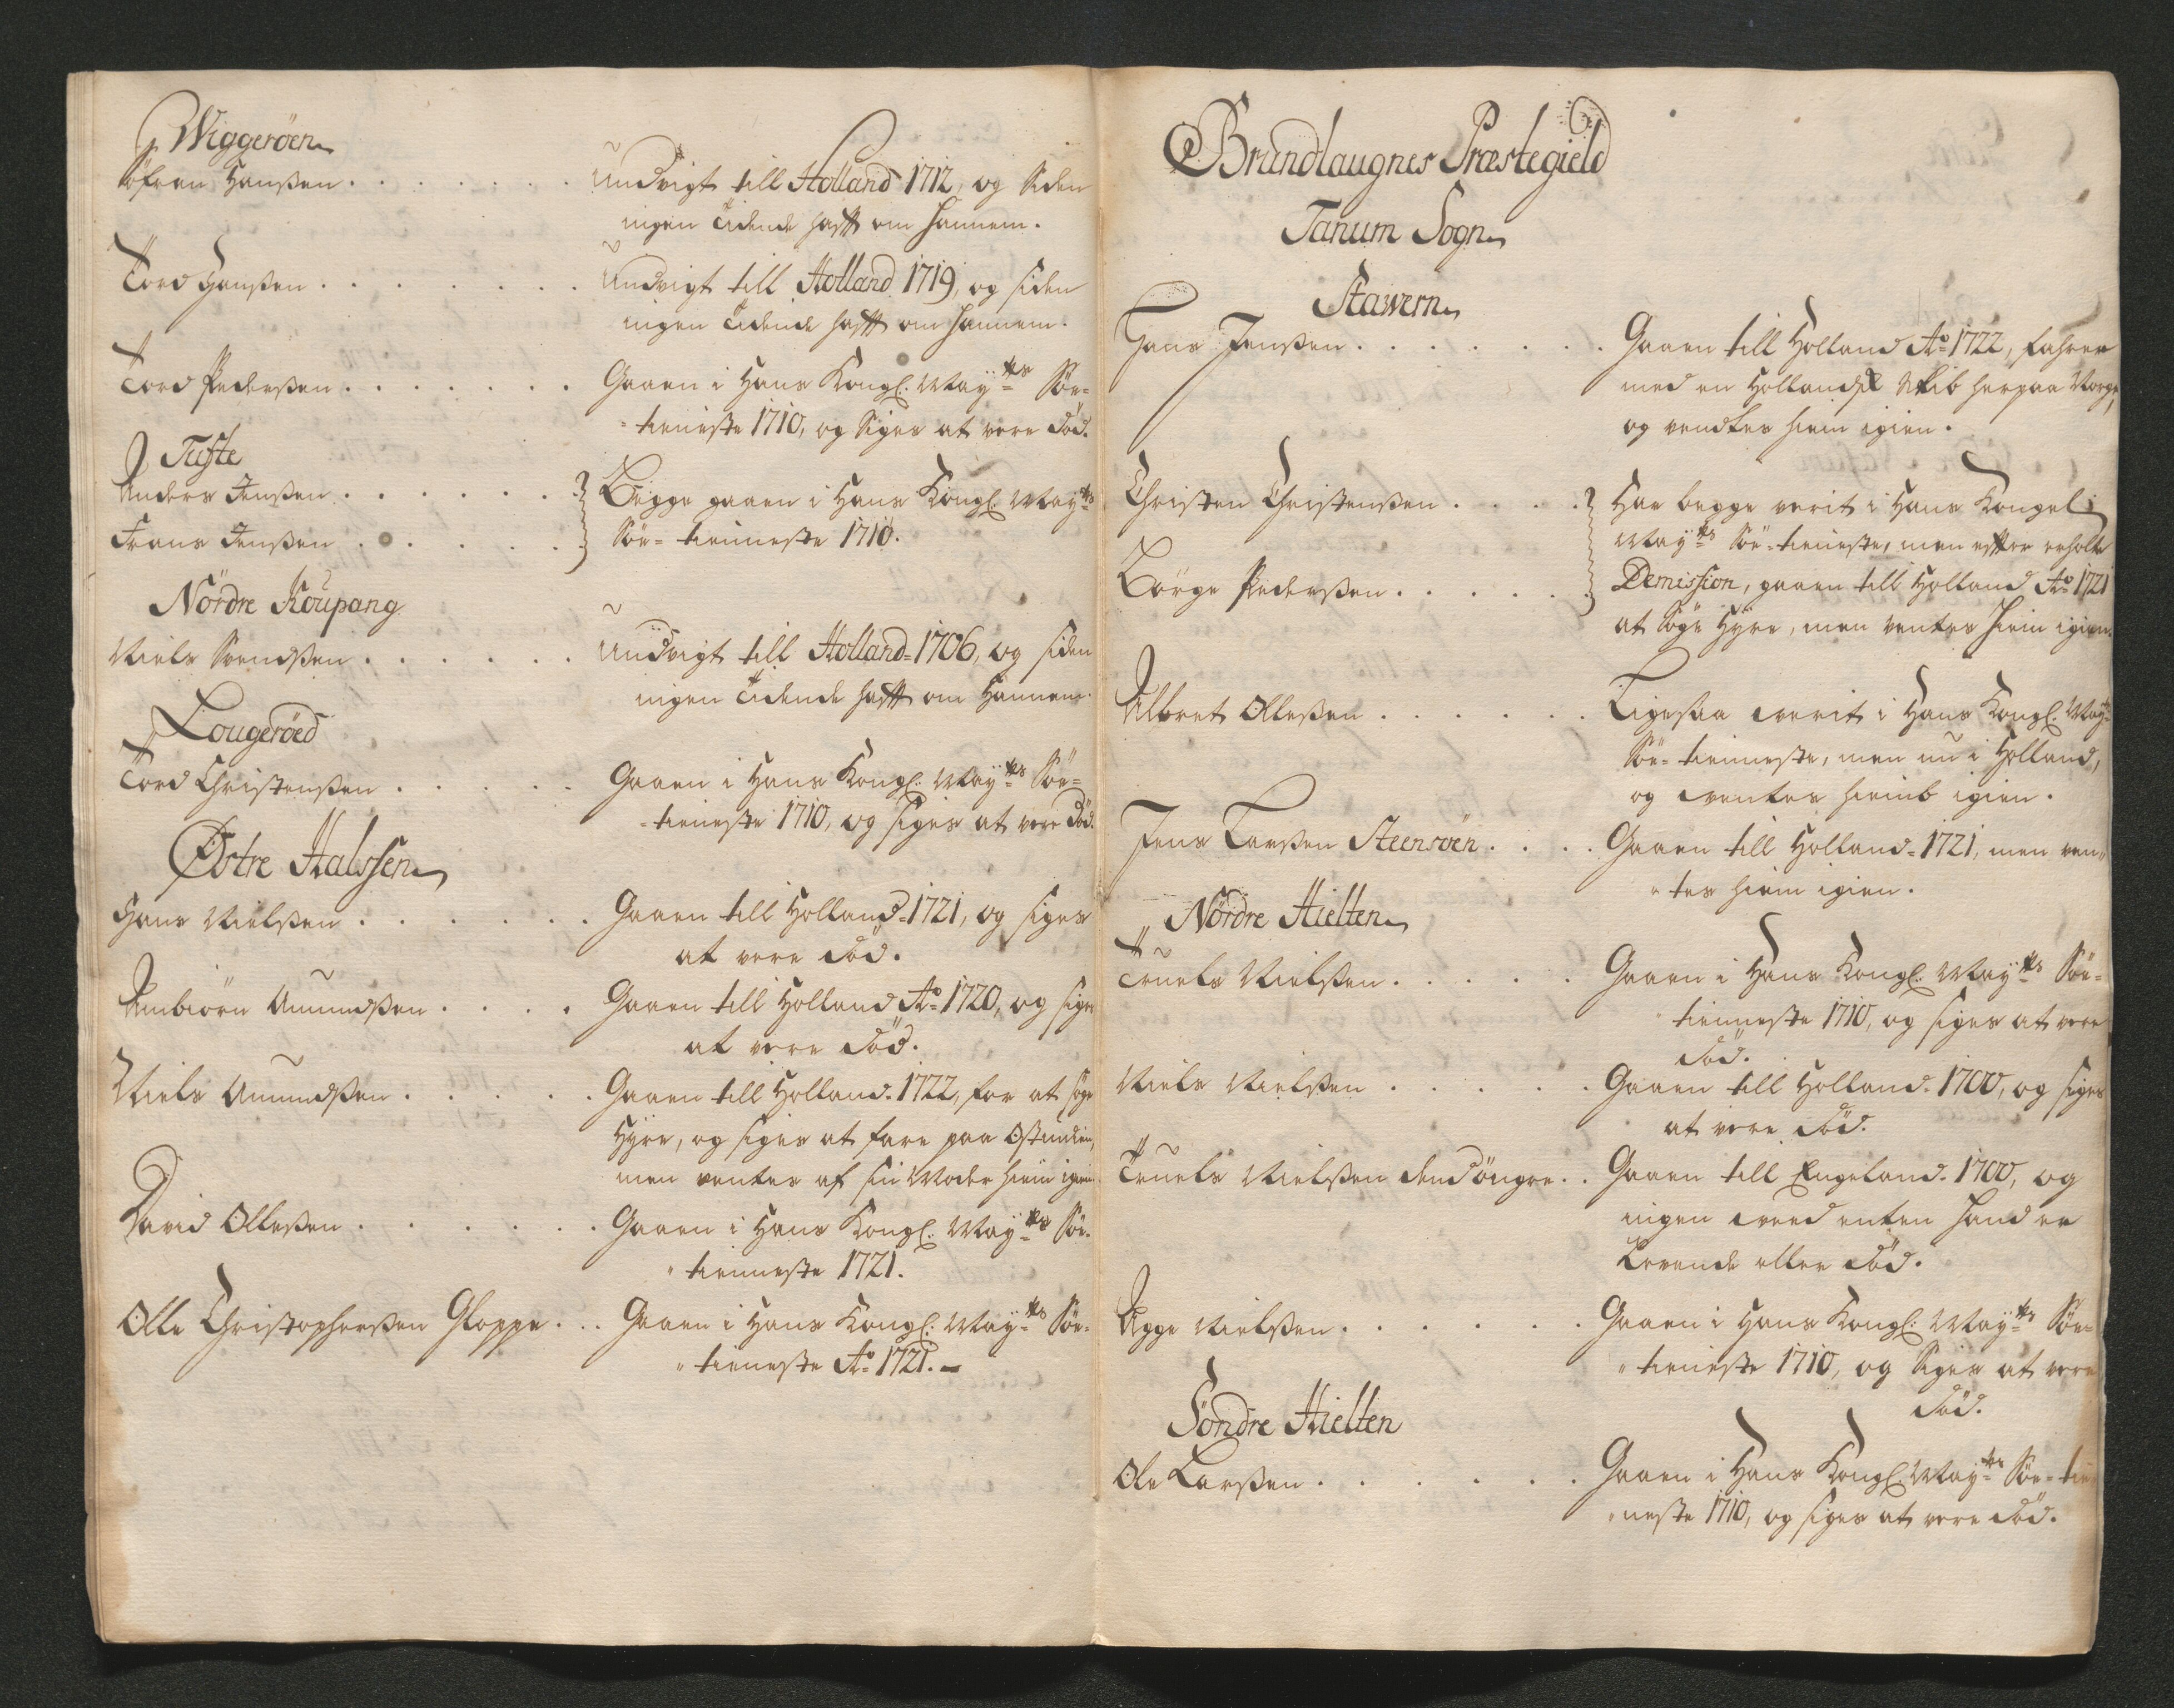 Wiggerøen
Søfren Hanßen . . . . . . . undvigt till Holland 1712, og Siden
ingen Tidende hafft om hannem.
Tord Hanßen . . . . . . . undvigt till Holland 1719, og siden
ingen Tidende hafft om hannem.
Tord Pederßen . . . . . . . Gaaen i Hans Kongl. May:ts Søe-
tieneste 1710, og Siges at være død.
Tufte
Anders Jenßen . . . . . . . Begge gaaen i Hans Kongl. May:ts
Frans Jenßen . . . . . . . Søe-tienneste 1710.
Nördre Koupang
Niels Svendßen . . . . . . undvigt till Holland-1706, og siden
ingen Tidende hafft om Hannem.
Lougerøed
Tord Christenßen . . . . . Gaaen i Hans Kongl. May:ts Søe-
tieneste 1710, og siges at være død.
Østre Halssen
Hans Nielßen . . . . . . Gaaen till Holland-1721, og siges
at være død.
Ambiörn Amundßen . . . . Gaaen till Holland A:o 1720, og siges
at være død.
Niels Amundßen . . . . . Gaaen till Holland-1722, for at søge
Hyre, og siges at fare paa Ostindien,
men ventes af sin Moder hiem igien
David Olleßen . . . . . . Gaaen i Hans Kongl. May:ts Søe-
tienneste 1721.
Olle Christopherßen Gloppe . . . Gaaen i Hans Kongl. May:ts Søe-
tieneste A:o 1721.
Brundlaugnes Præstegield
Tanum Sogn
Stawern
Hans Jenßen . . . . . . . Gaaen till Holland A:o 1722, fahrer
med en Hollandsk Skib herpaa Norge,
og ventes hiem igien.
Christen Christenßen . . . . Har begge verit i Hans Kongel:
May:ts Søe-tieneste, men efter erholte
Börge Pederßen . . . . . Demission, gaaen till Holland A:o 1721
at søge Hyre, men ventes hiem igien.
Albret Olleßen . . . . . . Ligesaa verit i Hans Kongl. May:ts
Søe-tienneste, men nu i Holland,
og ventes hiemb igien.
Jens Larßen Steensöen . . . . Gaaen till Holland-1721, men ven-
tes hiem igien.
Nördre Hielten
Truels Nielßen . . . . . Gaaen i Hans Kongl. May:ts Søe-
tienneste 1710, og siges at være
død.
Niels Nielßen . . . . . Gaaen till Holland-1700, og siges
at være død.
Truels Nielßen den Yngre . . Gaaen till Engeland-1700, og
ingen veed enten hand er
Levende eller død.
Agge Nielßen . . . . . . Gaaen i Hans Kongl. May:ts Søe-
tieneste 1710, og Siges at være
død.
Söndre Hielten
Ole Larßen . . . . . . Gaaen i Hans Kongl. May:ts Søe-tie
neste 1710, og siges at være død.